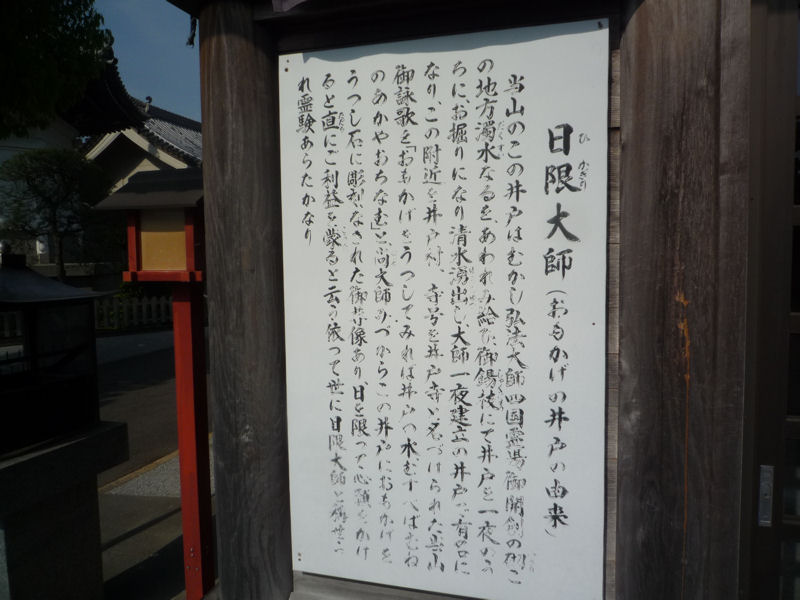 日限大師(おもかげの井戸の由来)
ひ かぎり
当山のこの井戸はむかし弘法大師四国霊場御開創の砌こ
の地方濁水なるを、あわれみ給ひ御錫杖にて井戸を一夜のう
ちに、お掘りになり清水湧出し、大師一夜建立の井戸で有名に
なり、この附近を井戸村、寺号を井戸寺と名づけられた当山
御詠歌を「おもかげをうつしてみれば井戸の水むすべばむね
のあかやおちなむ」と尚大師みづからこの井戸におもかげを
うつし石に彫刻なされた御尊像あり、日を限って心願をかけ
ると直にご利益を蒙ると云う依つて世に日限大師と称せら
れ霊験あらたかなり